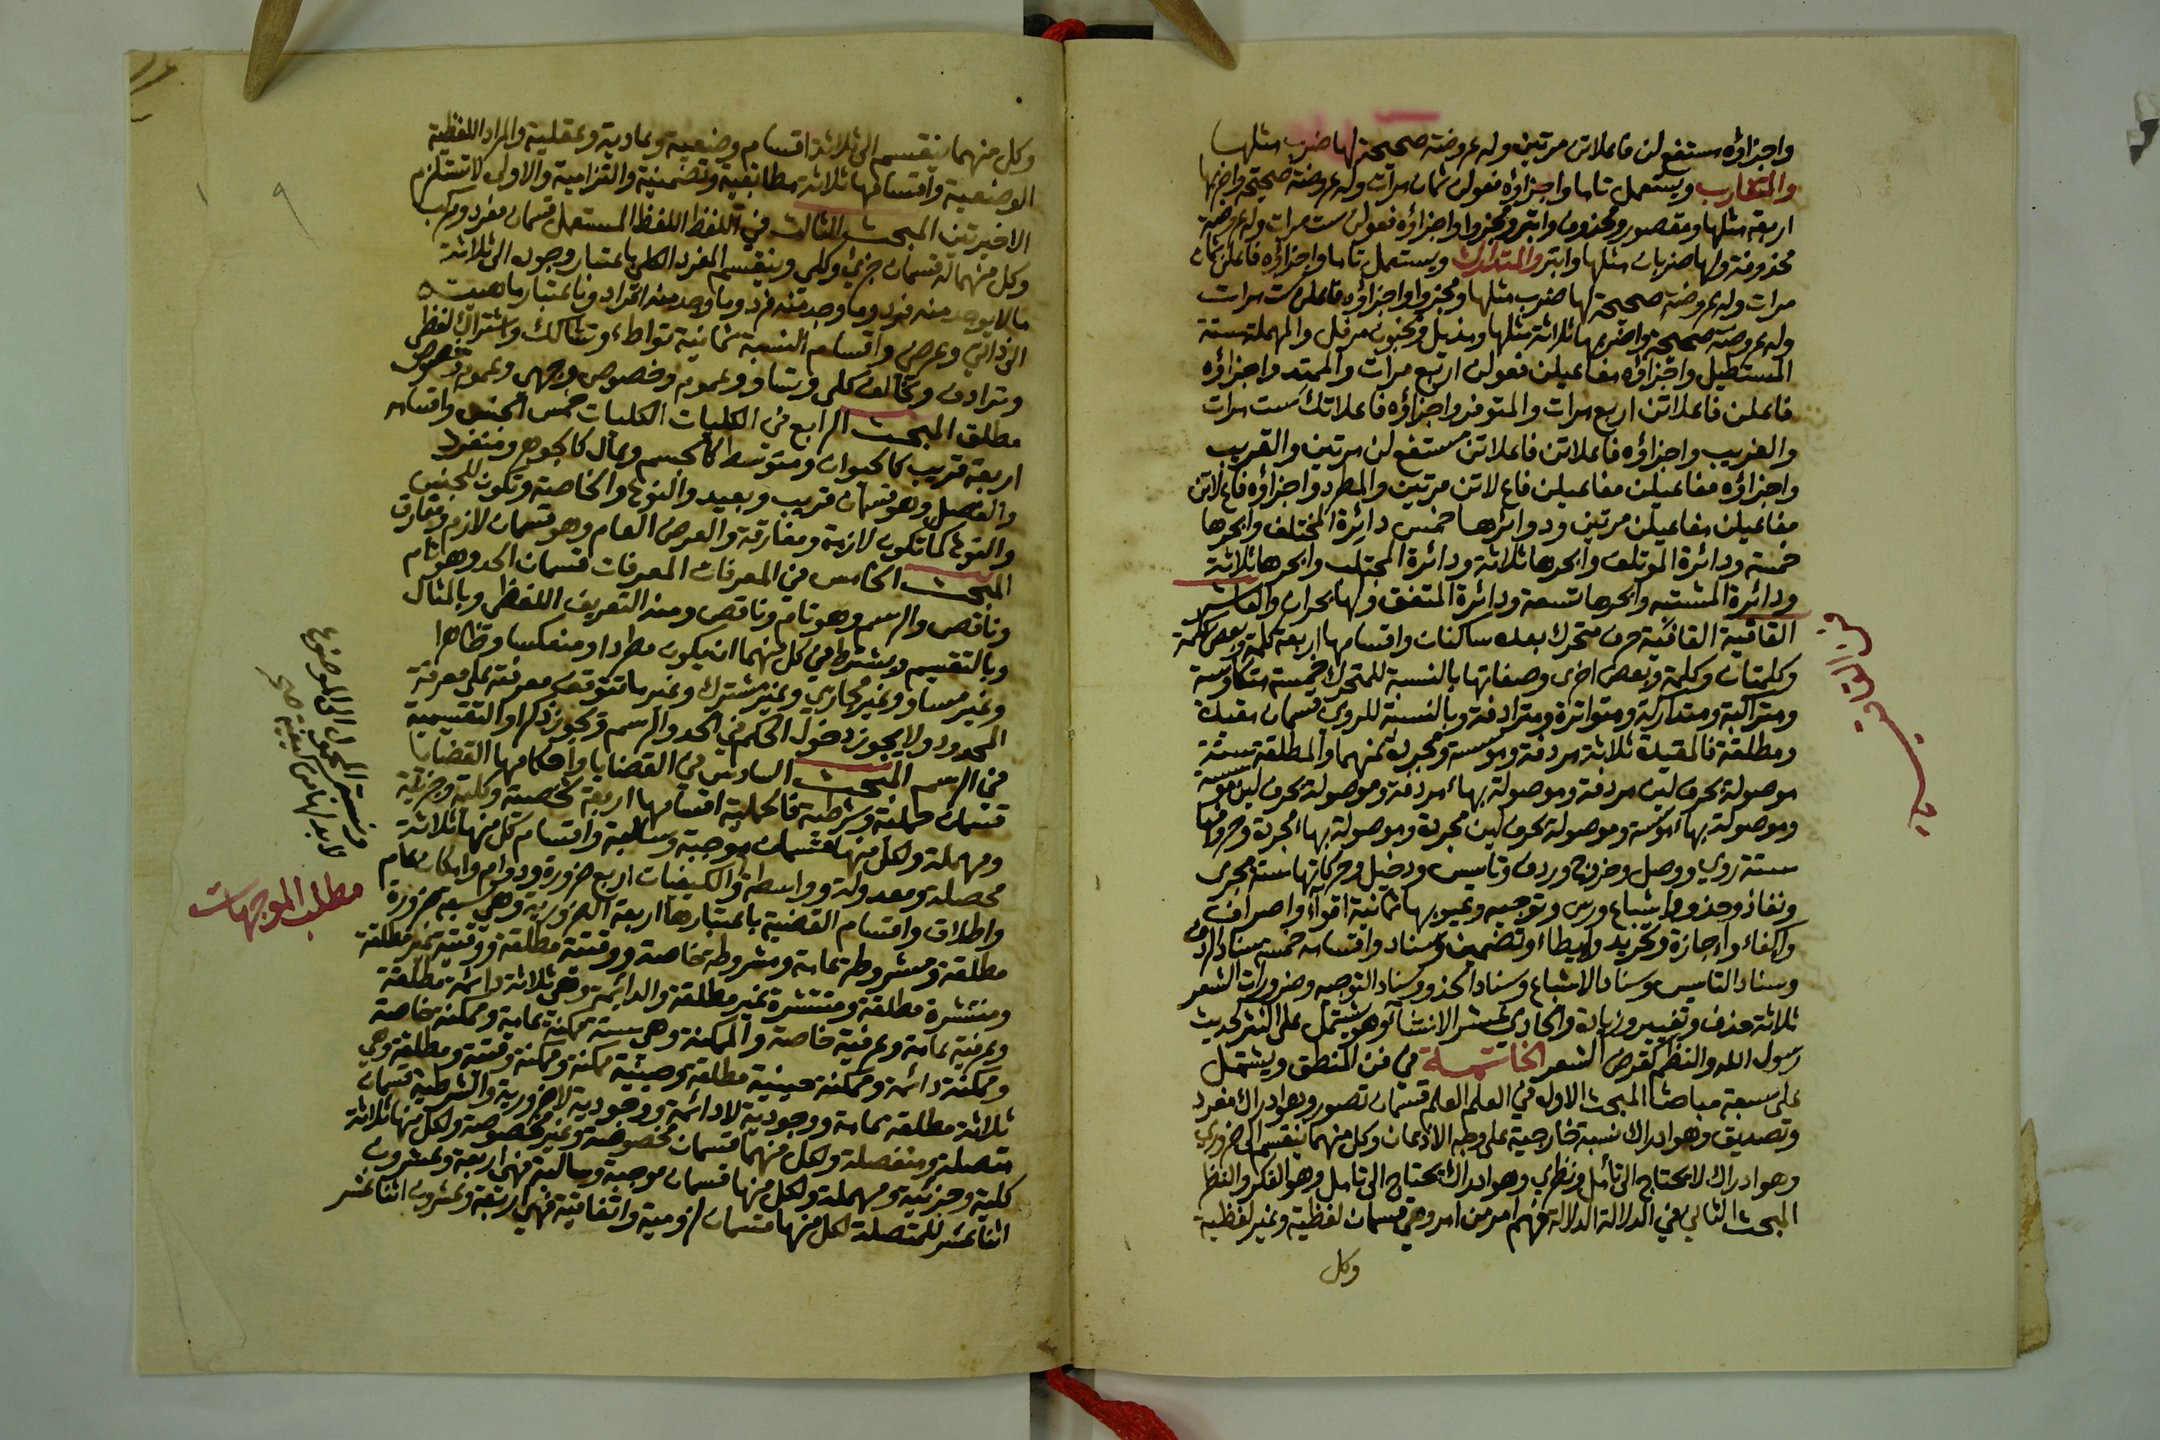 واجزاؤه مستفع لن فاعلاتن مرتين وله عروضة صحيحة لها ضرب مثلها
والمتقارب ويستعمل تاما واجزاؤه فعولن ثمان مرات وله عروضة صحيحة واضربها
اربعة مثلها ومقصور ومحذوف وابتر ومجزوا واجزاؤه فعولن ست مرات وله عروضة
محذوفة ولها ضربان مثلها وابتر والمتدارك ويستعمل تاما واجزاؤه فاعلن ثمان
مرات وله عروضة صحيحة لها ضرب مثلها ومجزوا واجزاؤه فاعلن ست مرات
وله عروضة صحيحة واضربها ثلاثة مثلها ومذيل ومخبون مرفل والمهملة ستة
المستطيل واجزاؤه مفاعيلن فعولن اربع مرات والممتد واجزاؤه
فاعلن فاعلاتن اربع مرات والمتوفر واجزاؤه فاعلاتك ست مرات
والغريب واجزاؤه فاعلاتن فاعلاتن مستفع لن مرتين والقريب
واجزاؤه مفاعيلن مفاعيلن فاع لاتن مرتين والمطرد واجزاؤه فاع لاتن
مفاعيلن مفاعيلن مرتين ودوائرها خمس دائرة المختلف وابحرها
خمسة ودائرة الموتلف وابحرها ثلاثة ودائرة المجتلب وابحرها ثلاثة
ودائرة المشتبه وابحرها تسعة ودائرة المتفق ولها بحران والعاشر
القافية القافية حرف متحرك بعده ساكنات واقسامها اربعة كلمة وبعض كلمة
وكلمتان وكلمة وبعض اخرى وصفاتها بالنسبة للمتحرك خمسة متكاوسة
ومتراكبة ومتداركة ومتواترة ومترادفة وبالنسبة للروي قسمان مقيدة
ومطلقة فالمقيدة ثلاثة مردفة وموسسة ومجردة عنهما والمطلقة ستة
موصولة بحرف لين مردفة وموصولة بهاء مردفة وموصولة بحرف لين موسسة
وموصولة بهاء موسسة وموصولة بحرف لين مجردة وموصولة بهاء مجردة وحروفها
ستة روي ووصل وخروج وردف وتاسيس ودخيل وحركاتها ستة مجرى
ونفاذ وحذو واشباع ورس وتوجيه وعيوبها ثمانية اقواء واصراف
واكفاء واجازة وتحريد وايطاء وتضمين وسناد واقسامه خمسة سناد الردف
وسناد التاسيس وسناد الاشباع وسناد الحذو وسناد التوجيه وضرورات الشعر
ثلاثة حذف وتغيير وزيادة والحادي عشر الانشاء وهو يشتمل على النثر كحديث
رسول الله والنظم كقرض الشعر الخاتمة في فن المنطق ويشتمل
على سبعة مباحث المبحث الاول في العلم العلم قسمان تصور وهو ادراك مفرد
وتصديق وهو ادراك نسبة خارجية على وجه الاذعان وكل منهما ينقسم الى ضروري
وهو ادراك لا يحتاج الى تأمل ونظري وهو ادراك يحتاج الى تامل وهو الفكر والنظر
المبحث الثاني في الدلالة الدلالة فهم امر من امر وهي قسمان لفظية وغير لفظية
وكل
وكل منهما ينقسم الى ثلاثة اقسام وضعية وعادية وعقلية والمراد اللفظية
الوضعية واقسامها ثلاثة مطابقية وتضمنية والتزامية والاولى لا تستلزم
الاخيرتين المبحث الثالث في اللفظ اللفظ المستعمل قسمان مفرد ومركب
وكل منهما له قسمان جزئي وكلي وينقسم المفرد الكلي باعتبار وجوده الى ثلاثة
ما لا يوجد منه فرد وما وجد منه فرد وما وجد منه افراد وباعتبار ماهيته
الى ذاتي وعرضي واقسام النسبة ثمانية تواطء وتشاكك واشتراك لفظي
وترادف وتخالف كلي وتساو وعموم وخصوص وجهي وعموم وخصوص
مطلق المبحث الرابع في الكليات الكليات خمس الجنس واقسامه
اربعة قريب كالحيوان ومتوسط كالجسم وعال كالجوهر ومنفرد
والفصل وهو قسمان قريب وبعيد والنوع والخاصة وتكون للجنس
والنوع كما تكون لازمة ومفارقة والعرض العام وهو قسمان لازم ومفارق
المبحث الخامس في المعرفات المعرفات قسمان الحد وهو تام
وناقص والرسم وهو تام وناقص ومنه التعريف اللفظي وبالمثال
وبالتقسيم ويشترط في كل منهما ان يكون مطردا ومنعكسا وظاهرا
وغير مساو وغير مجازي وغير مشترك وغير ما تتوقف معرفته على معرفة
المحدود ولا يجوز دخول الحكم في الحد والرسم ويجوز ذكر او التقسيمية
في الرسم المبحث السادس في القضايا واحكامها القضايا
قسمان حملية وشرطية فالحملية اقسامها اربعة شخصية وكلية وجزئية
ومهملة ولكل منها قسمان موجبة وسالبة واقسام كل منها ثلاثة
محصلة ومعدولة وواسطة والكيفيات اربع ضرورة ودوام وامكان عام
واطلاق واقسام القضية باعتبارها اربعة الضرورية وهي سبعة ضرورة
مطلقة ومشروطة عامة ومشروطة خاصة ووقتية مطلقة ووقتية غير مطلقة
ومنتشرة مطلقة ومنتشرة غير مطلقة والدائمة وهي ثلاثة دائمة مطلقة
وعرفية عامة وعرفية خاصة والممكنة وهي ستة ممكنة عامة وممكنة خاصة
وممكنة دائمة وممكنة حينية مطلقة وحينية ممكنة وممكنة وقتية ومطلقة وهي
ثلاثة مطلقة عامة ووجودية لا دائمة ووجودية لا ضرورية والشرطية قسمان
متصلة ومنفصلة ولكل منهما قسمان مخصوصة وغير مخصوصة ولكل منها ثلاثة
كلية وجزئية ومهملة ولكل منها قسمان موجبة وسالبة فهي اربعة وعشرون
اثنا عشر للمتصلة لكل منها قسمان لزومية واتفاقية فهي اربعة وعشرون اثنا عشر
مطلب الموجهات